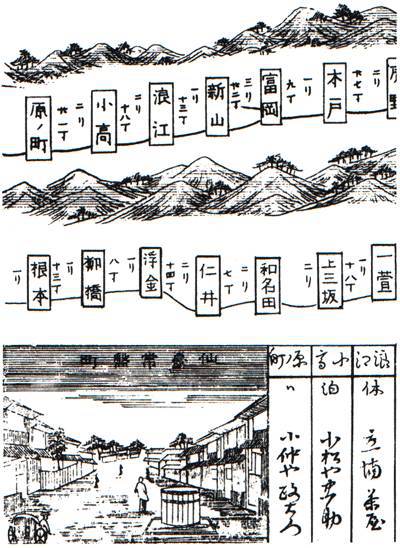 野
木戸
一リ
九丁
富岡
三リ
新山
一リ
十三丁
浪江
二リ
十八丁
小高
二リ
原ノ町
一萱
一リ
十八丁
上三坂
二リ
和名田
二リ
七丁
仁井
二リ
十四丁
浮金
一リ
八丁
柳橋
一リ
十三丁
根本
一リ
浪江
休
茶屋
小高
泊
小松や
助
原ノ町
〃
小仲や政
仙臺常盤町